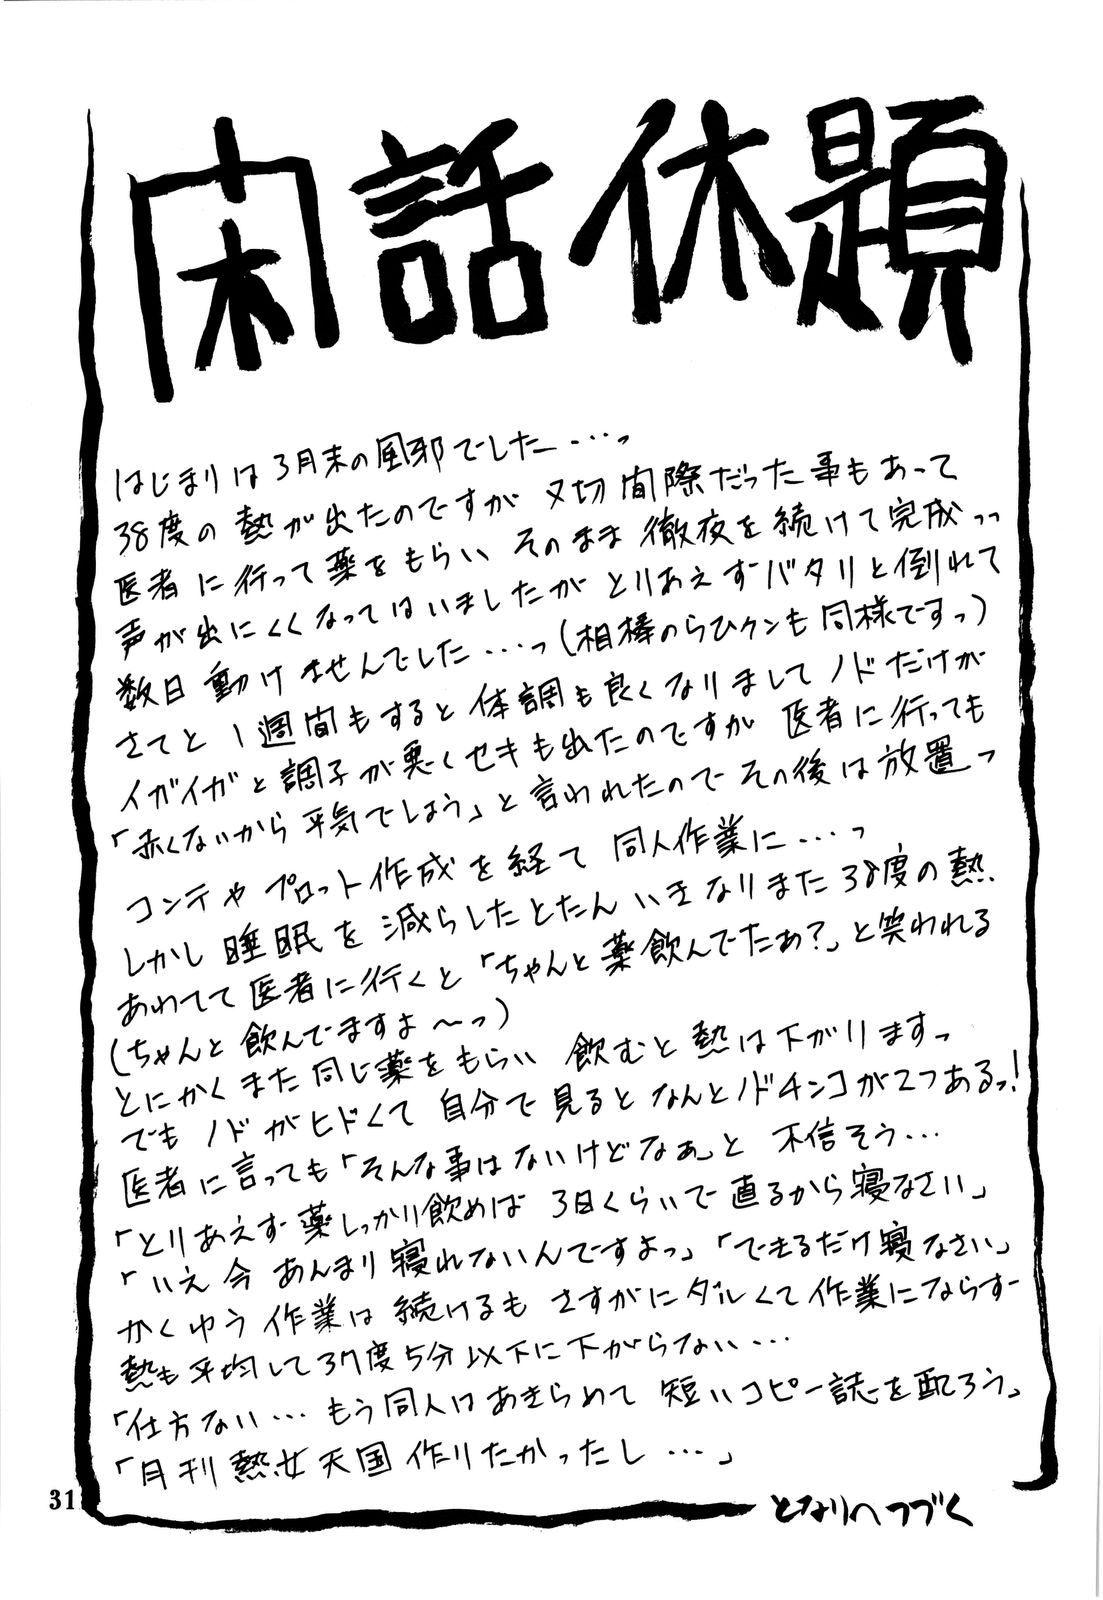 閑話休題
はじまりは3月末の風邪でした…っ
38度の熱が出たのですが 〆切間際だった事もあって
医者に行って薬をもらい そのまま徹夜を続けて完成っっ
声が出にくくなってはいましたが とりあえずバタリと倒れて
数日動けませんでした…っ(相棒のらひクンも同様ですっ)
さてと 1週間もすると体調も良くなりまして ノドだけが
イガイガと調子が悪くセキも出たのですが 医者に行っても
「赤くないから平気でしょう」と言われたので その後は放置っ
コンテや プロット作成を経て 同人作業に…っ
しかし睡眠を減らしたとたん いきなりまた38度の熱
あわてて医者に行くと「ちゃんと薬飲んでたぁ?」と笑われる
(ちゃんと飲んでますよ〜っ)
とにかくまた同じ薬をもらい 飲むと熱は下がりますっ
でも ノドがヒドくて 自分で見ると なんとノドチンコが2つあるっ!
医者に言っても「そんな事はないけどなぁ」と 不信そう…
「とりあえず薬しっかり飲めば 3日くらいで直るから寝なさい」
「いえ今 あんまり寝れないんですよっ」「できるだけ寝なさい」
かくゆう作業は続けるも さすがにダルくて作業にならず
熱も平均して37度5分以下に下がらない…
「仕方ない…もう同人はあきらめて 短いコピー誌を配ろう」
「月刊熱女天国 作りたかったし…」
となりへつづく
31